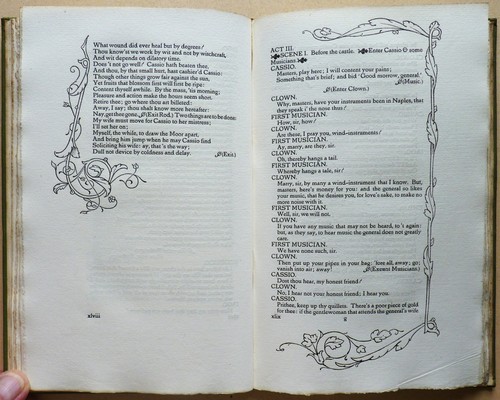 What wound did ever heal but by degrees?
Thou know'st we work by wit and not by witchcraft,
And wit depends on dilatory time.
Does't not go well? Cassio hath beaten thee,
And thou, by that small hurt, hast cashier'd Cassio:
Though other things grow fair against the sun,
Yet fruits that blossom first will first be ripe:
Content thyself awhile. By the mass, 'tis morning;
Pleasure and action make the hours seem short.
Retire thee; go where thou art billeted:
Away, I say; thou shalt know more hereafter:
Nay, get thee gone. (Exit Rod.) Two things are to be done:
My wife must move for Cassio to her mistress;
I'll set her on;
Myself, the while, to draw the Moor apart,
And bring him jump when he may Cassio find
Soliciting his wife: ay, that's the way;
Dull not device by coldness and delay. (Exit)
xlviii
ACT III.
SCENE I. Before the castle. Enter Cassio & some
Musicians.
CASSIO.
Masters, play here; I will content your pains;
Something that's brief; and bid 'Good morrow, general.'
(Music.)
(Enter Clown.)
CLOWN.
Why, masters, have your instruments been in Naples, that
they speak i' the nose thus?
FIRST MUSICIAN.
How, sir, how?
CLOWN.
Are these, I pray you, wind-instruments?
FIRST MUSICIAN.
Ay, marry, are they, sir.
CLOWN.
Oh, thereby hangs a tail.
FIRST MUSICIAN.
Whereby hangs a tale, sir?
CLOWN.
Marry, sir, by many a wind-instrument that I know. But,
masters, here's money for you: and the general so likes
your music, that he desires you, for love's sake, to make
no more noise with it.
FIRST MUSICIAN.
Well, sir, we will not.
CLOWN.
If you have any music that may not be heard, to 't again:
but, as they say, to hear music the general does not greatly
care.
FIRST MUSICIAN.
We have none such, sir.
CLOWN.
Then put up your pipes in your bag; 'fore all, away; go;
vanish into air; away! (Exeunt Musicians.)
CASSIO.
Dost thou hear, my honest friend?
CLOWN.
No, I hear not your honest friend; I hear you.
CASSIO.
Prithee, keep up thy quillets. There's a poor piece of gold
for thee: if the gentlewoman that attends the general's wife
xlix